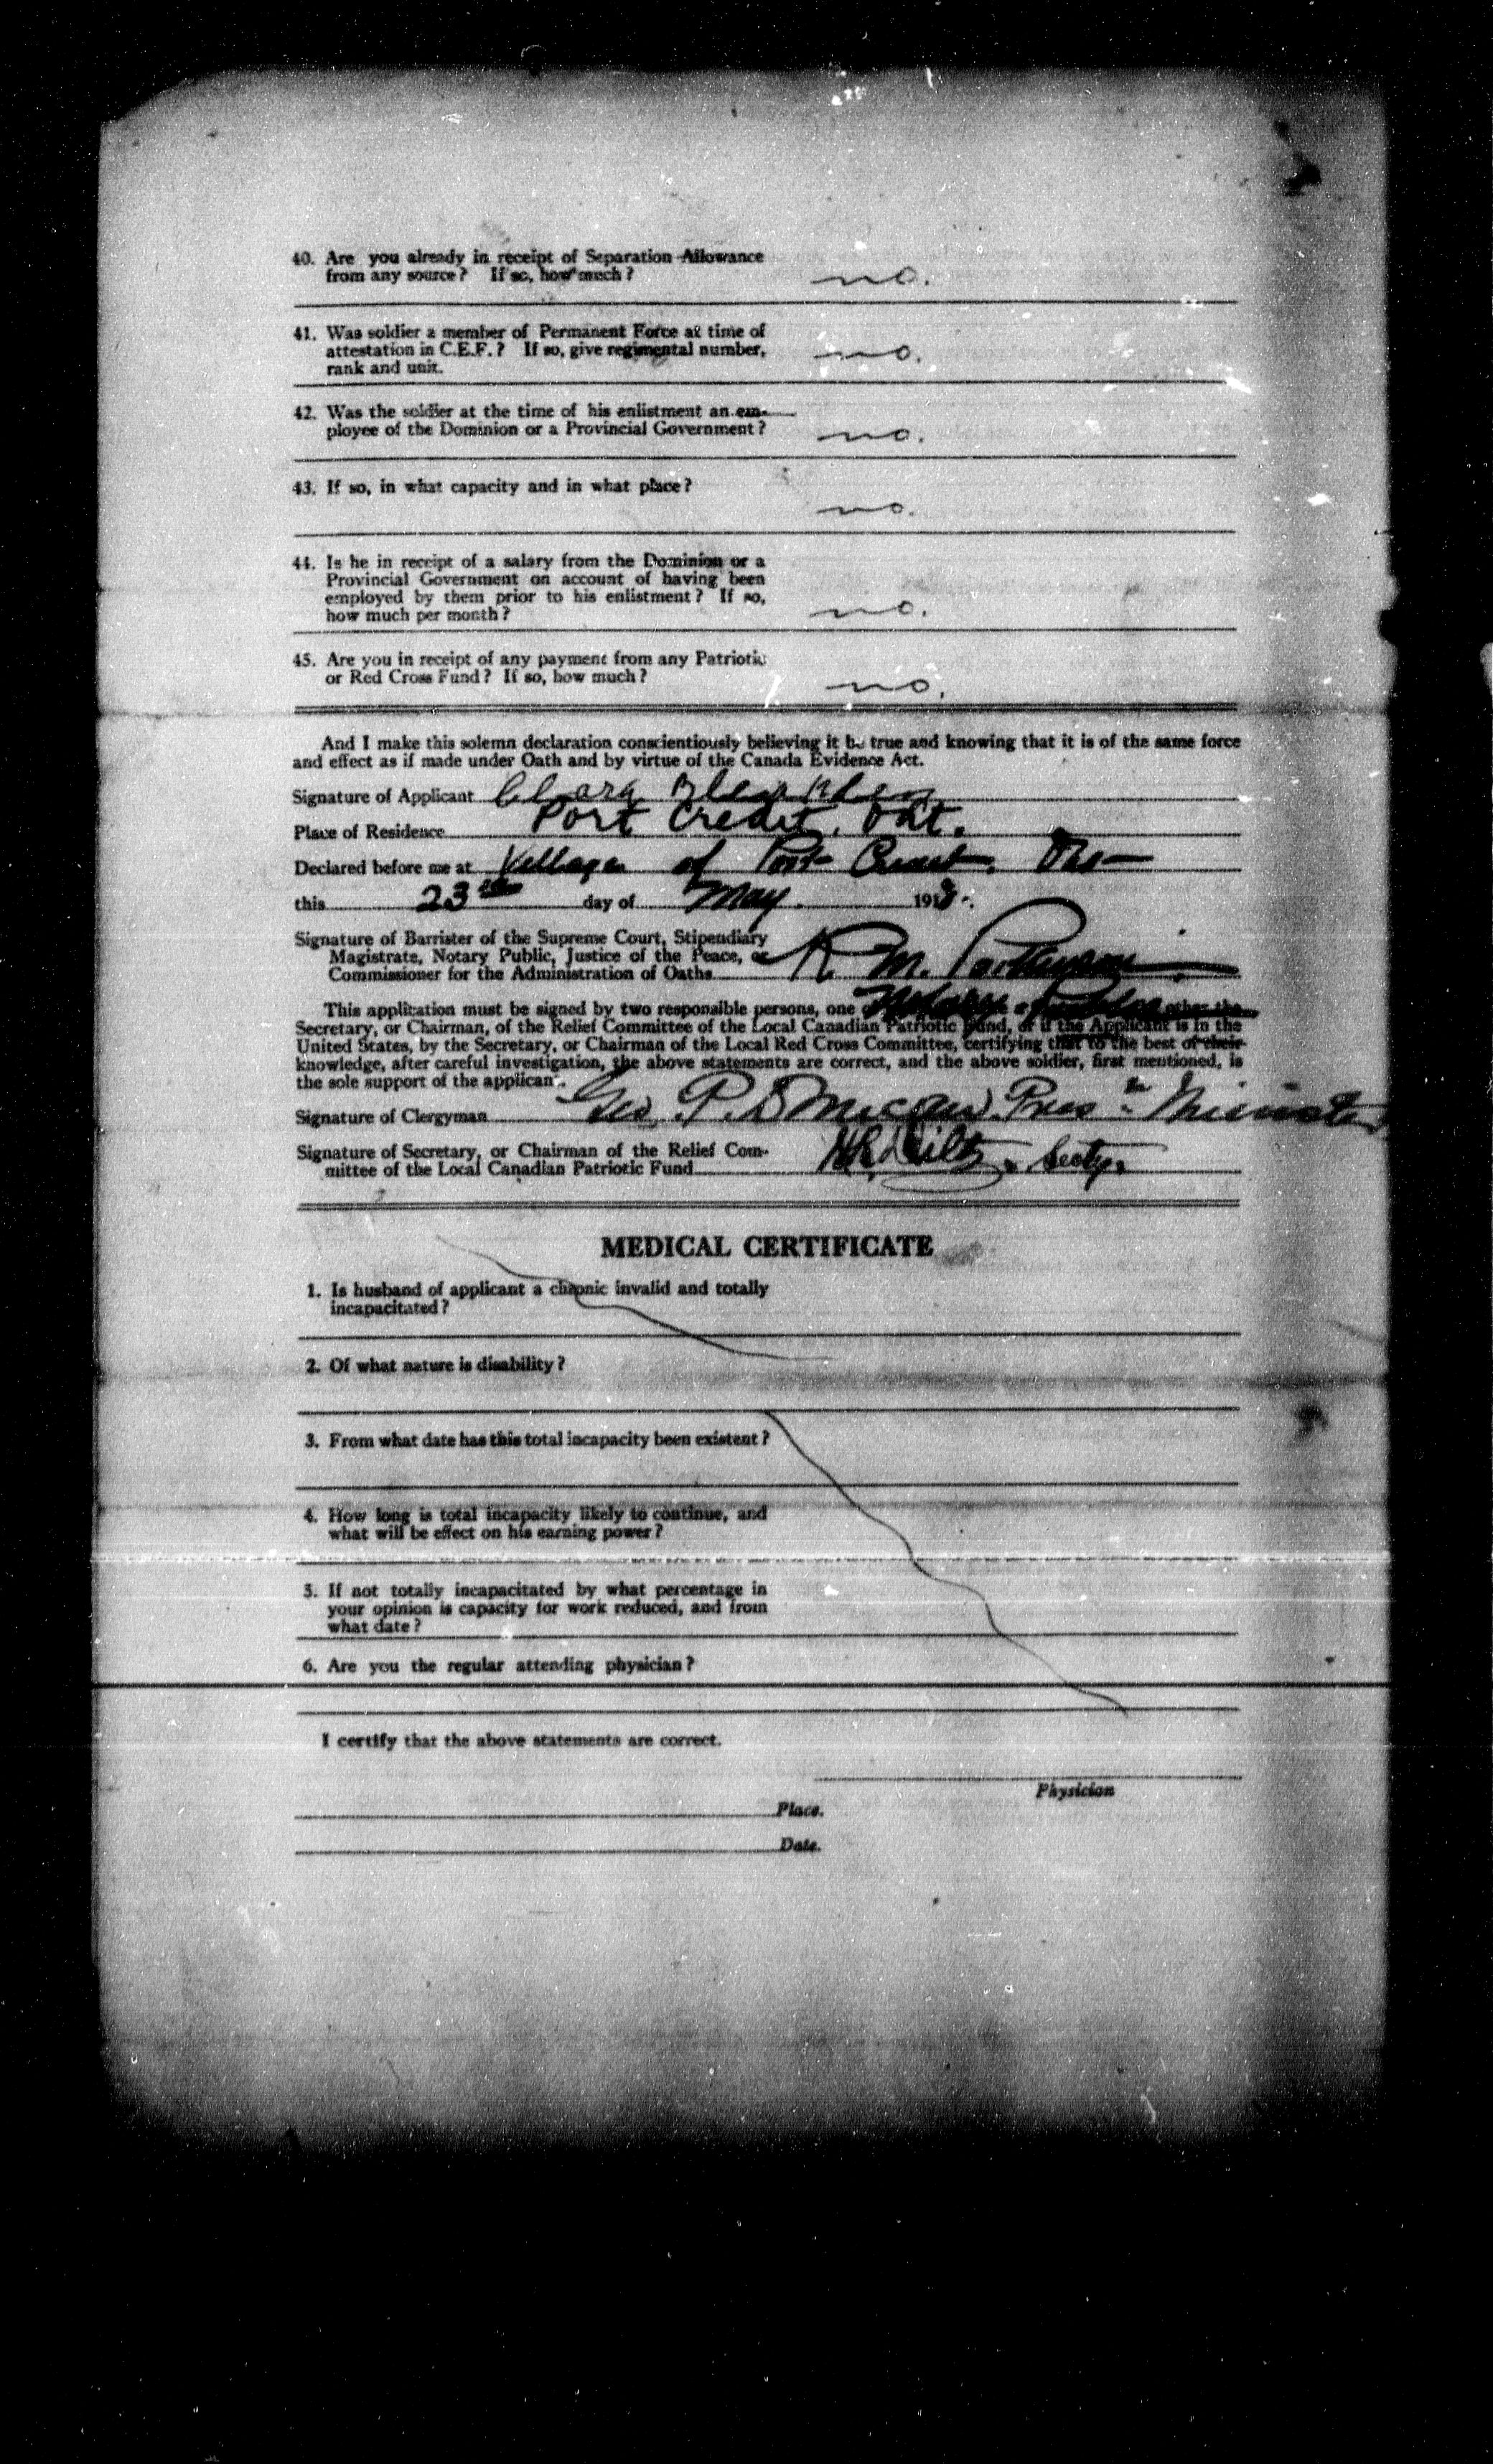 40. Are you already in receipt of Separation Allowance
from any source? If so, how much? no.
41. Was soldier a member of Permanent Force at time of
attestation in C.E.F.? If so, give regimental number, no.
rank and unit.
42. Was the soldier at the time of his enlistment an em-
ployee of the Dominion or a Provincial Government? no.
43. If so, in what capacity and in what place?
no.
44. Is he in receipt of a salary from the Dominion or a
Provincial Government on account of having been
employed by them prior to his enlistment? If so,
how much per month? no.
45. Are you in receipt of any payment from any Patriotic
or Red Cross Fund? If so, how much? no.
And I make this solemn declaration conscientiously believing it be true and knowing that it is of the same force
and effect as if made under Oath and by virtue of the Canada Evidence Act.
Signature of Applicant Clara
Place of Residence Port Credit, Ont.
Declared before me at Village of Port Credit. Ont
this 23rd day of May. 1918.
Signature of Barrister of the Supreme Court, Stipendiary
Magistrate, Notary Public, Justice of the Peace, or
Commissioner for the Administration of Oaths R. M.
This application must be signed by two responsible persons, one Notary Public other the
Secretary, or Chairman, of the Relief Committee of the Local Canadian Patriotic Fund, or if the Applicant is in the
United States, by the Secretary, or Chairman of the Local Red Cross Committee, certifying that to the best of their
knowledge, after careful investigation, the above statements are correct, and the above soldier, first mentioned, is
the sole support of the applicant.
Signature of Clergyman Geo. P. Duncan Presn Minister
Signature of Secretary, or Chairman of the Relief Com-
mittee of the Local Canadian Patriotic Fund Secty.
MEDICAL CERTIFICATE
1. Is husband of applicant a chronic invalid and totally
incapacitated?
2. Of what nature is disability?
3. From what date has this total incapacity been existent?
4. How long is total incapacity likely to continue, and
what will be effect on his earning power?
5. If not totally incapacitated by what percentage in
your opinion is capacity for work reduced, and from
what date?
6. Are you the regular attending physician?
I certify that the above statements are correct.
Physician
Place.
Date.